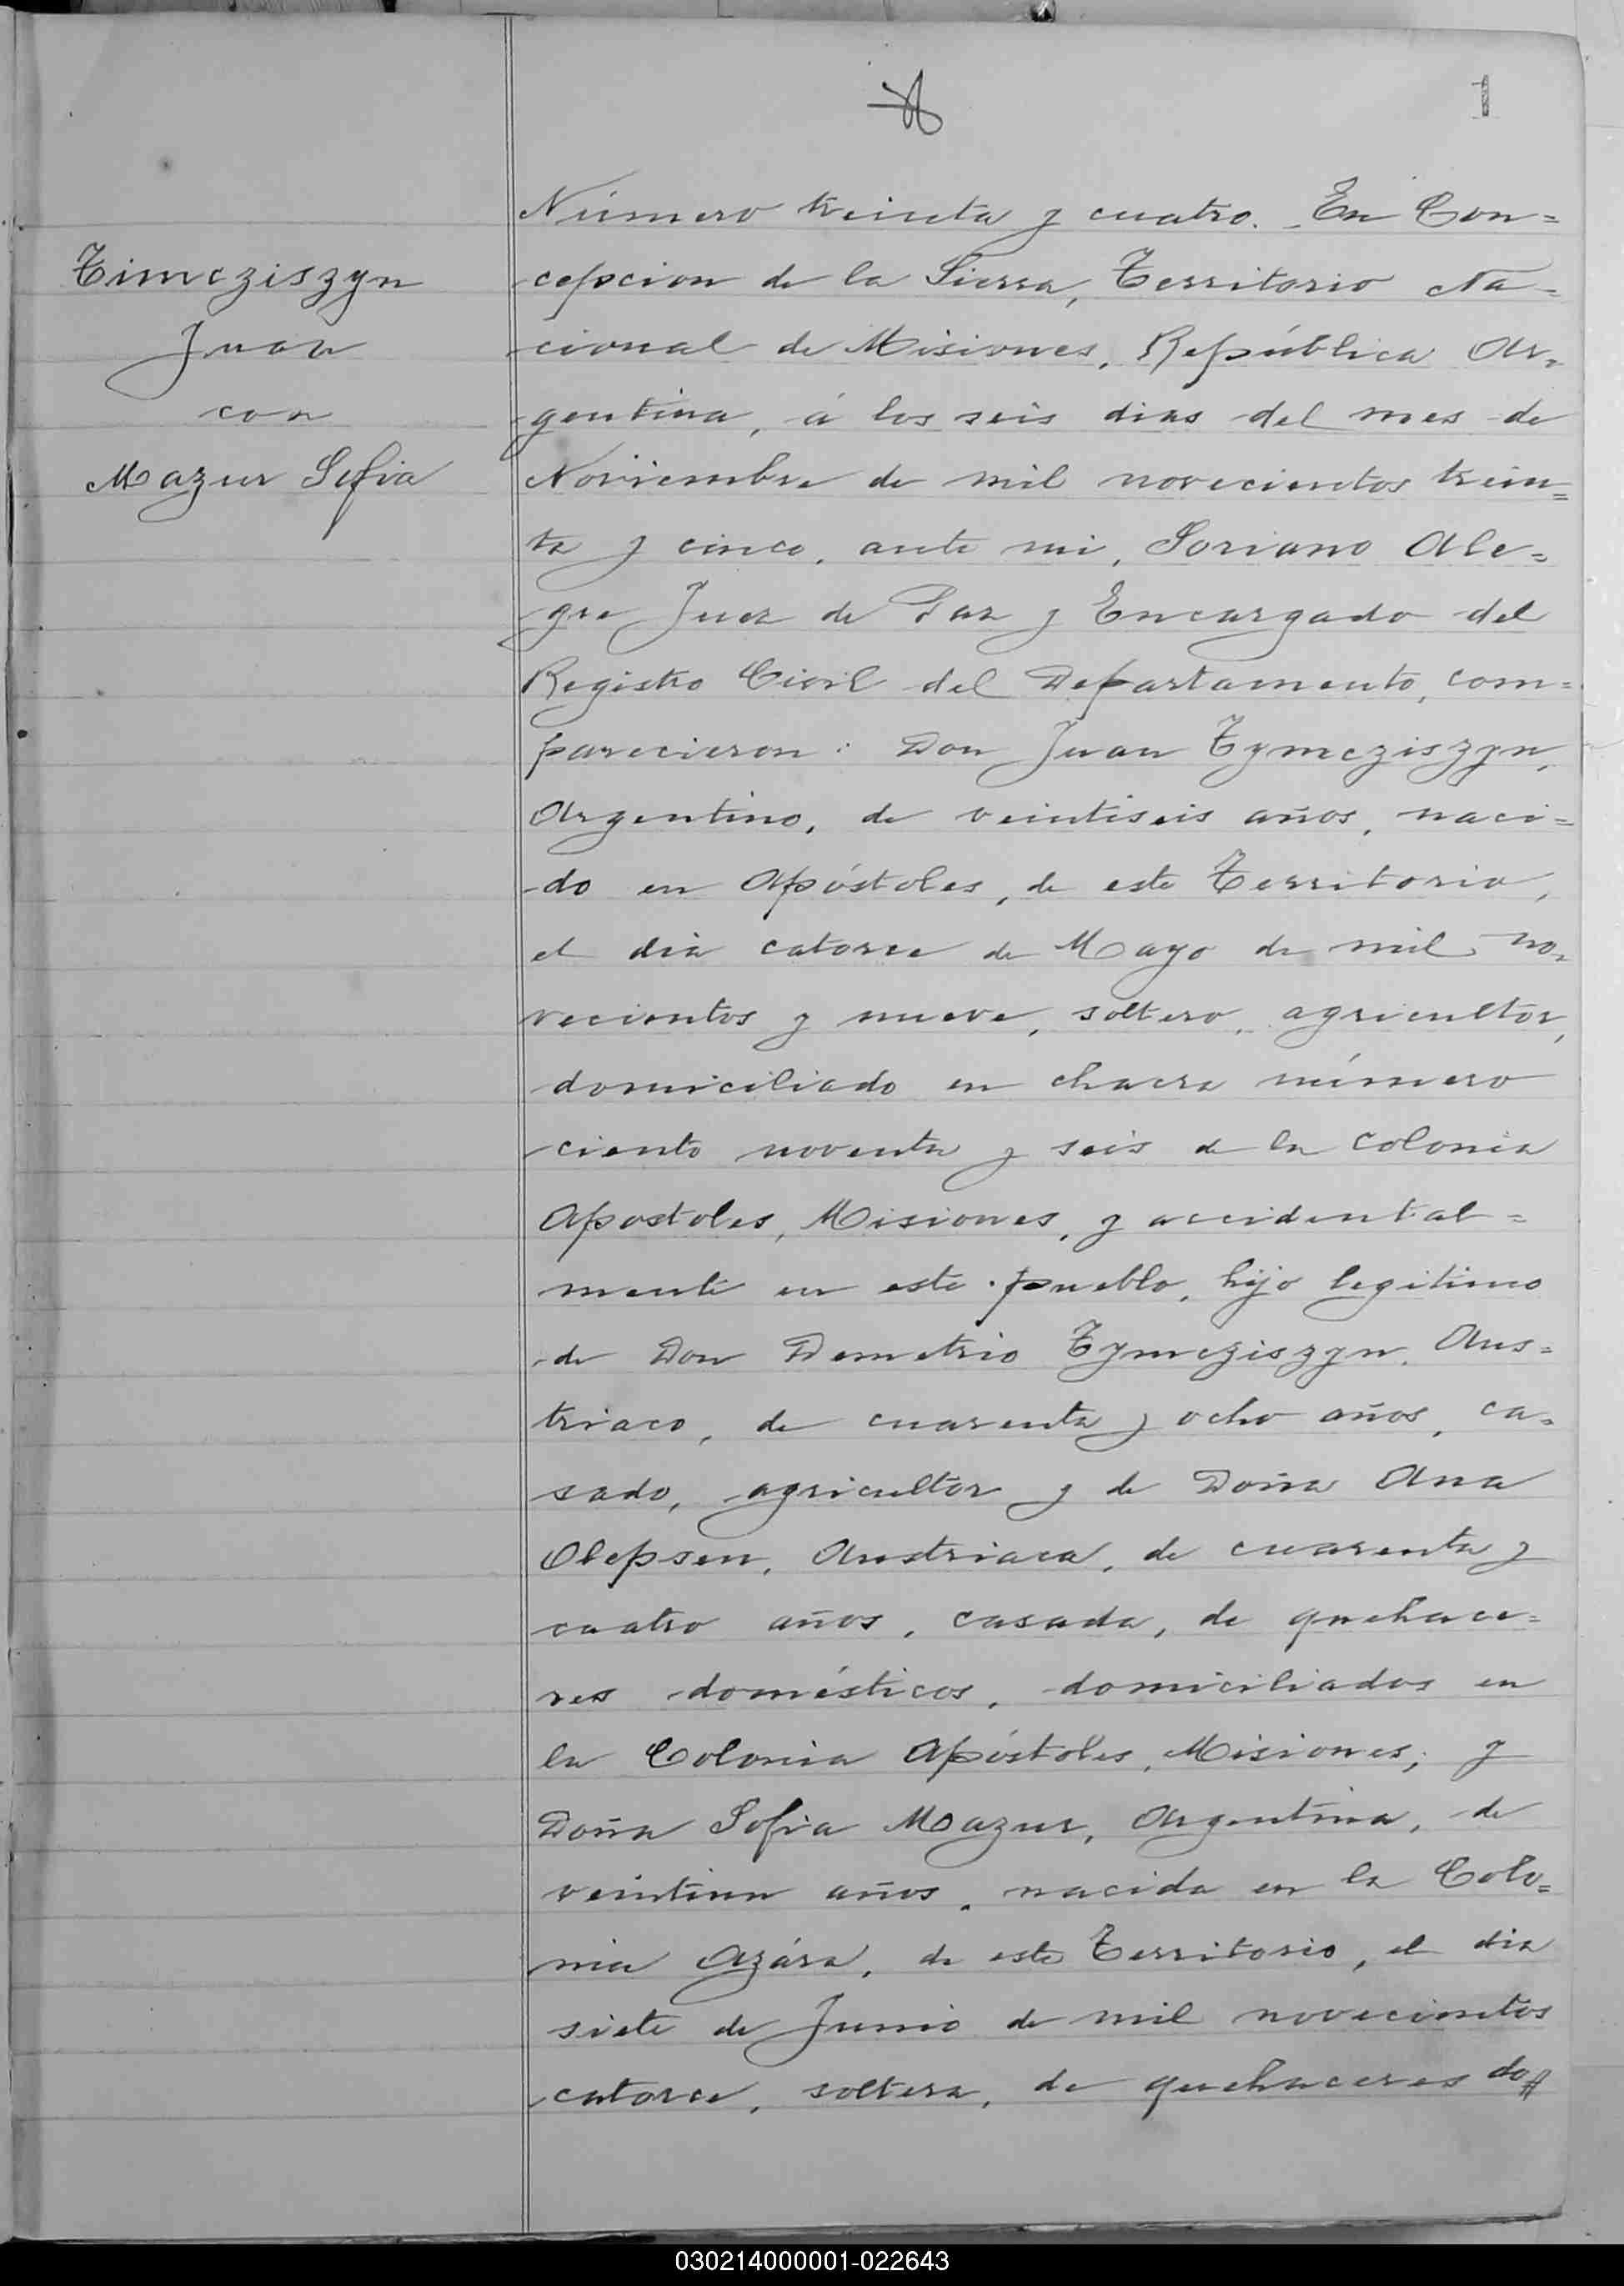 1
Timcziszyn
Juan
con
Mazur Sofia
Número treinta y cuatro. En Con=
cepcion de la Sierra, Territorio Na=
cional de Misiones, República Ar=
gentina, á los seis dias del mes de
Noviembre de mil novecientos trein=
ta y cinco, ante mi, Soriano Ale=
gre Juez de Paz y Encargado del
Registro Civil del Departamento, com=
parecieron: Don Juan Tymcziszyn,
Argentino, de veintiseis años, naci=
do en Apóstoles, de este Territorio,
el dia catorce de Mayo de mil no=
vecientos y nueve, soltero, agricultor,
domiciliado en chacra número
ciento noventa y seis de la colonia
Apostoles, Misiones, y accidental=
mente en este pueblo, hijo legitimo
de Don Demetrio Tymcziszyn, Aus=
triaco, de cuarenta y ocho años, ca=
sado, agricultor y de Doña Ana
Olepsen, Austriaca, de cuarenta y
cuatro años, casada, de quehace=
res domésticos, domiciliados en
la Colonia Apóstoles, Misiones; y
Doña Sofia Mazur, Argentina, de
veintiun años, nacida en la Colo=
nia Azára, de este Territorio, el dia
siete de Junio de mil novecientos
catorce, soltera, de quehaceres do
030214000001-022643